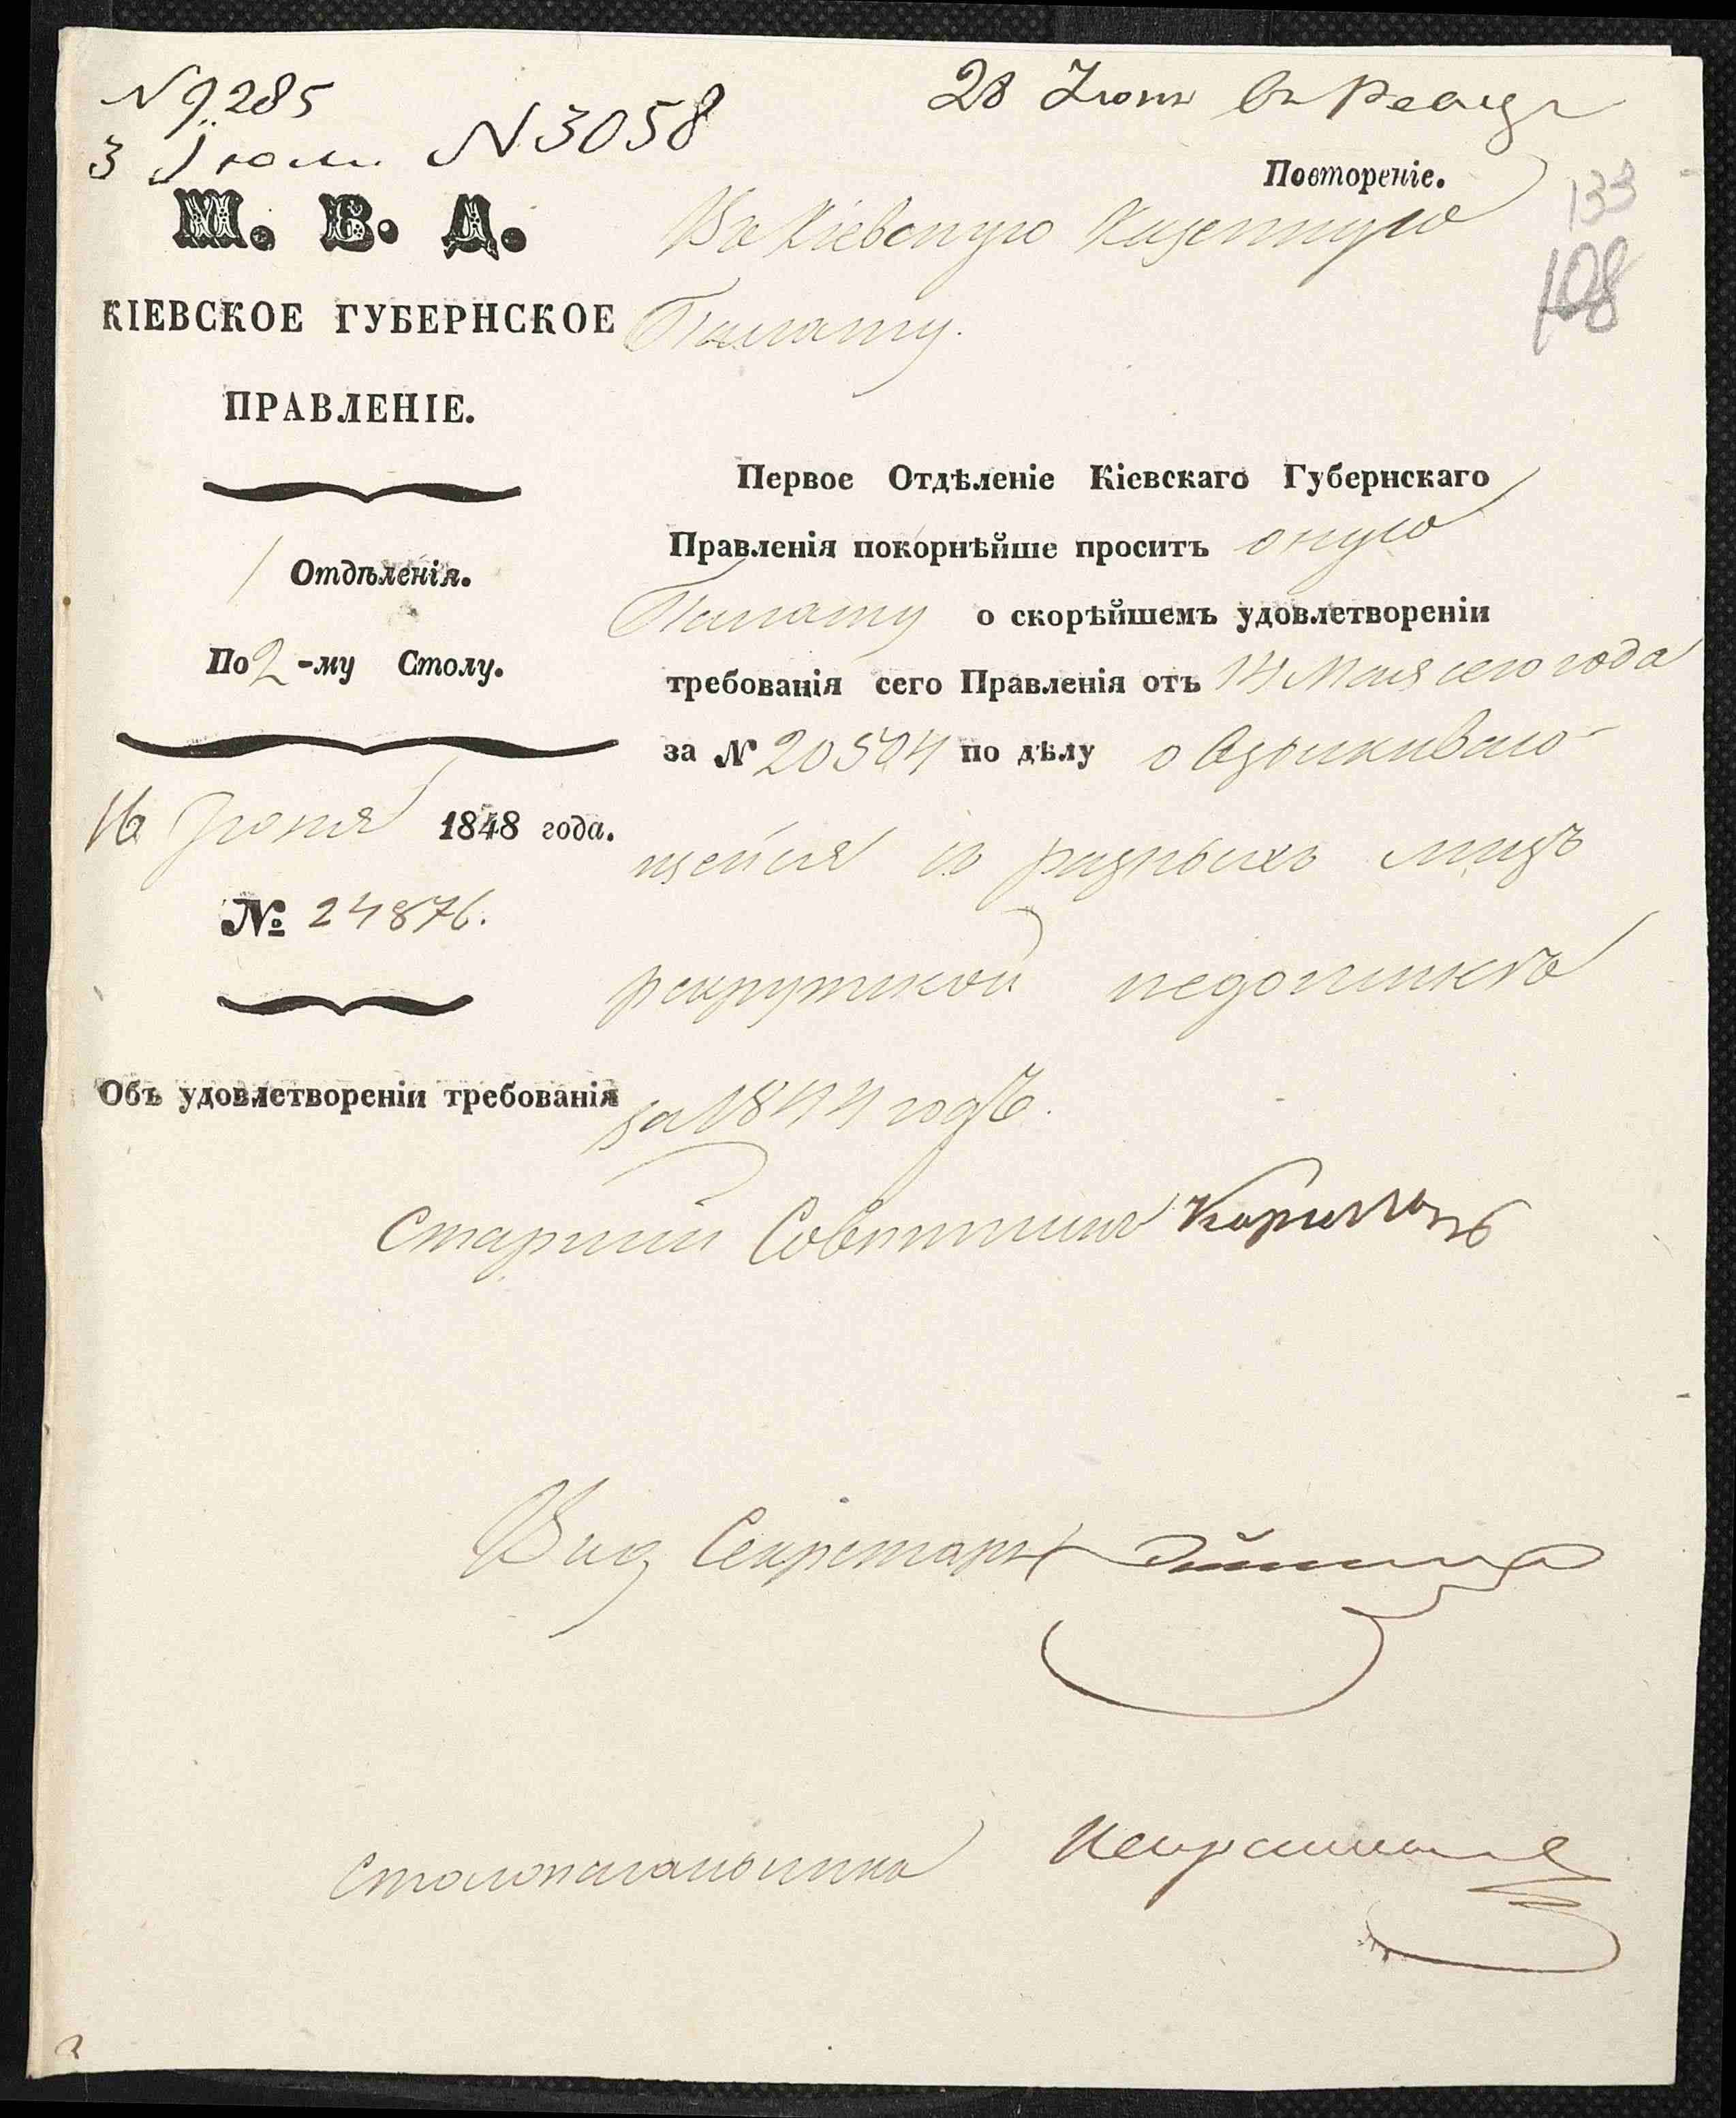 N 9285
3 Июля N 3058
28 Июня въ
Повтореніе.
133
108
М. В. Д.
КІЕВСКОЕ ГУБЕРНСКОЕ
ПРАВЛЕНІЕ.
1 Отдѣленія.
По 2-му Столу.
16 Іюня 1848 года.
№ 24876.
Объ удовлетвореніи требованія
Въ Кіевскую Казенную
Палату.
Первое Отдѣленіе Кіевскаго Губернскаго
Правленія покорнѣйше проситъ оную
Палату о скорѣйшемъ удовлетвореніи
требованія сего Правленія отъ 14 Мая сего года
за № 20504 по дѣлу о взыскиваю-
щейся съ разныхъ лицъ
рекрутской недоимкѣ
за 1844 годъ.
Старшій Совѣтникъ
Секретарь
Столоначальника